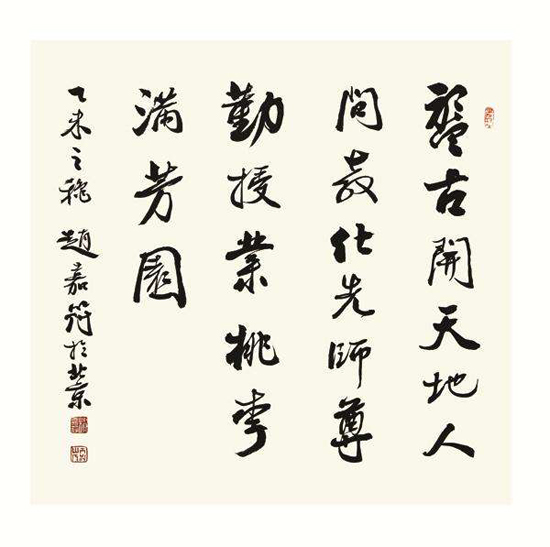 盤古開天地人
間教化先師尊
勤授業桃李
滿芳園
乙未之穐 趙嘉符於北京